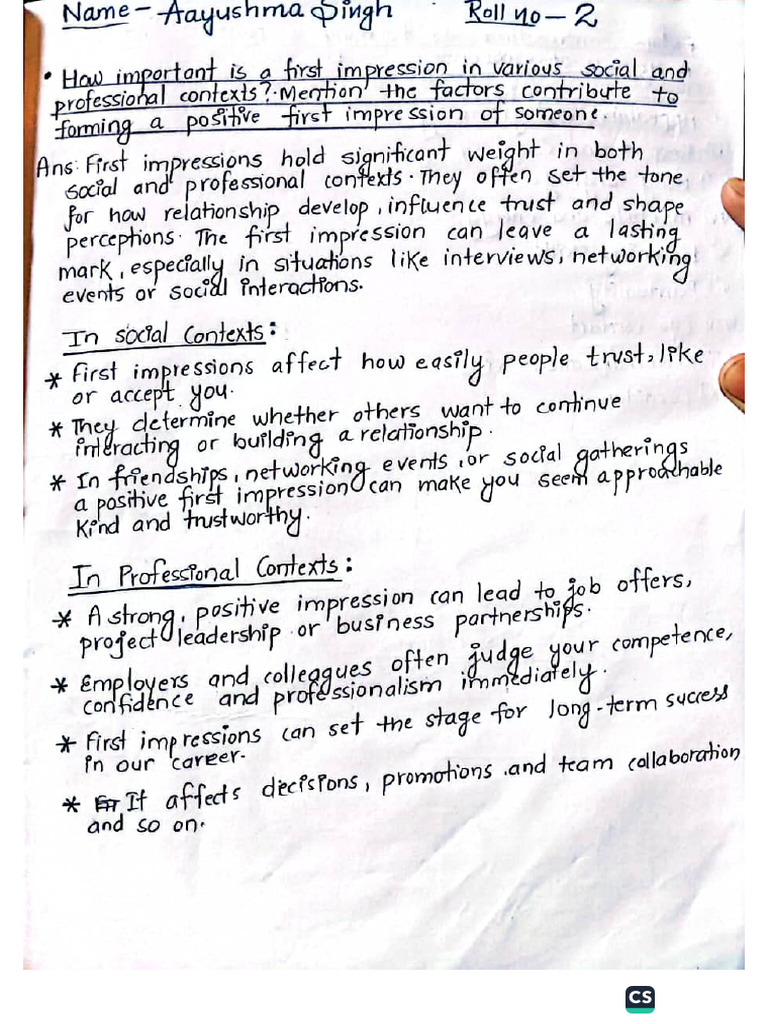 Name - Aayushma Singh Roll no - 2
• How important is a first impression in various social and
professional contexts? Mention the factors contribute to
forming a positive first impression of someone.
Ans: First impressions hold significant weight in both
social and professional contexts. They often set the tone
for how relationship develop, influence trust and shape
perceptions. The first impression can leave a lasting
mark, especially in situations like interviews, networking
events or social interactions.
In Social Contexts:
* First impressions affect how easily people trust, like
or accept you.
* They determine whether others want to continue
interacting or building a relationship.
* In friendships, networking events, or social gatherings
a positive first impression can make you seem approachable
kind and trustworthy.
In Professional Contexts:
* A strong, positive impression can lead to job offers,
project leadership or business partnerships.
* Employers and colleagues often judge your competence,
confidence and professionalism immediately.
* First impressions can set the stage for long-term success
in our career.
* It affects decisions, promotions and team collaboration
and so on.
CS